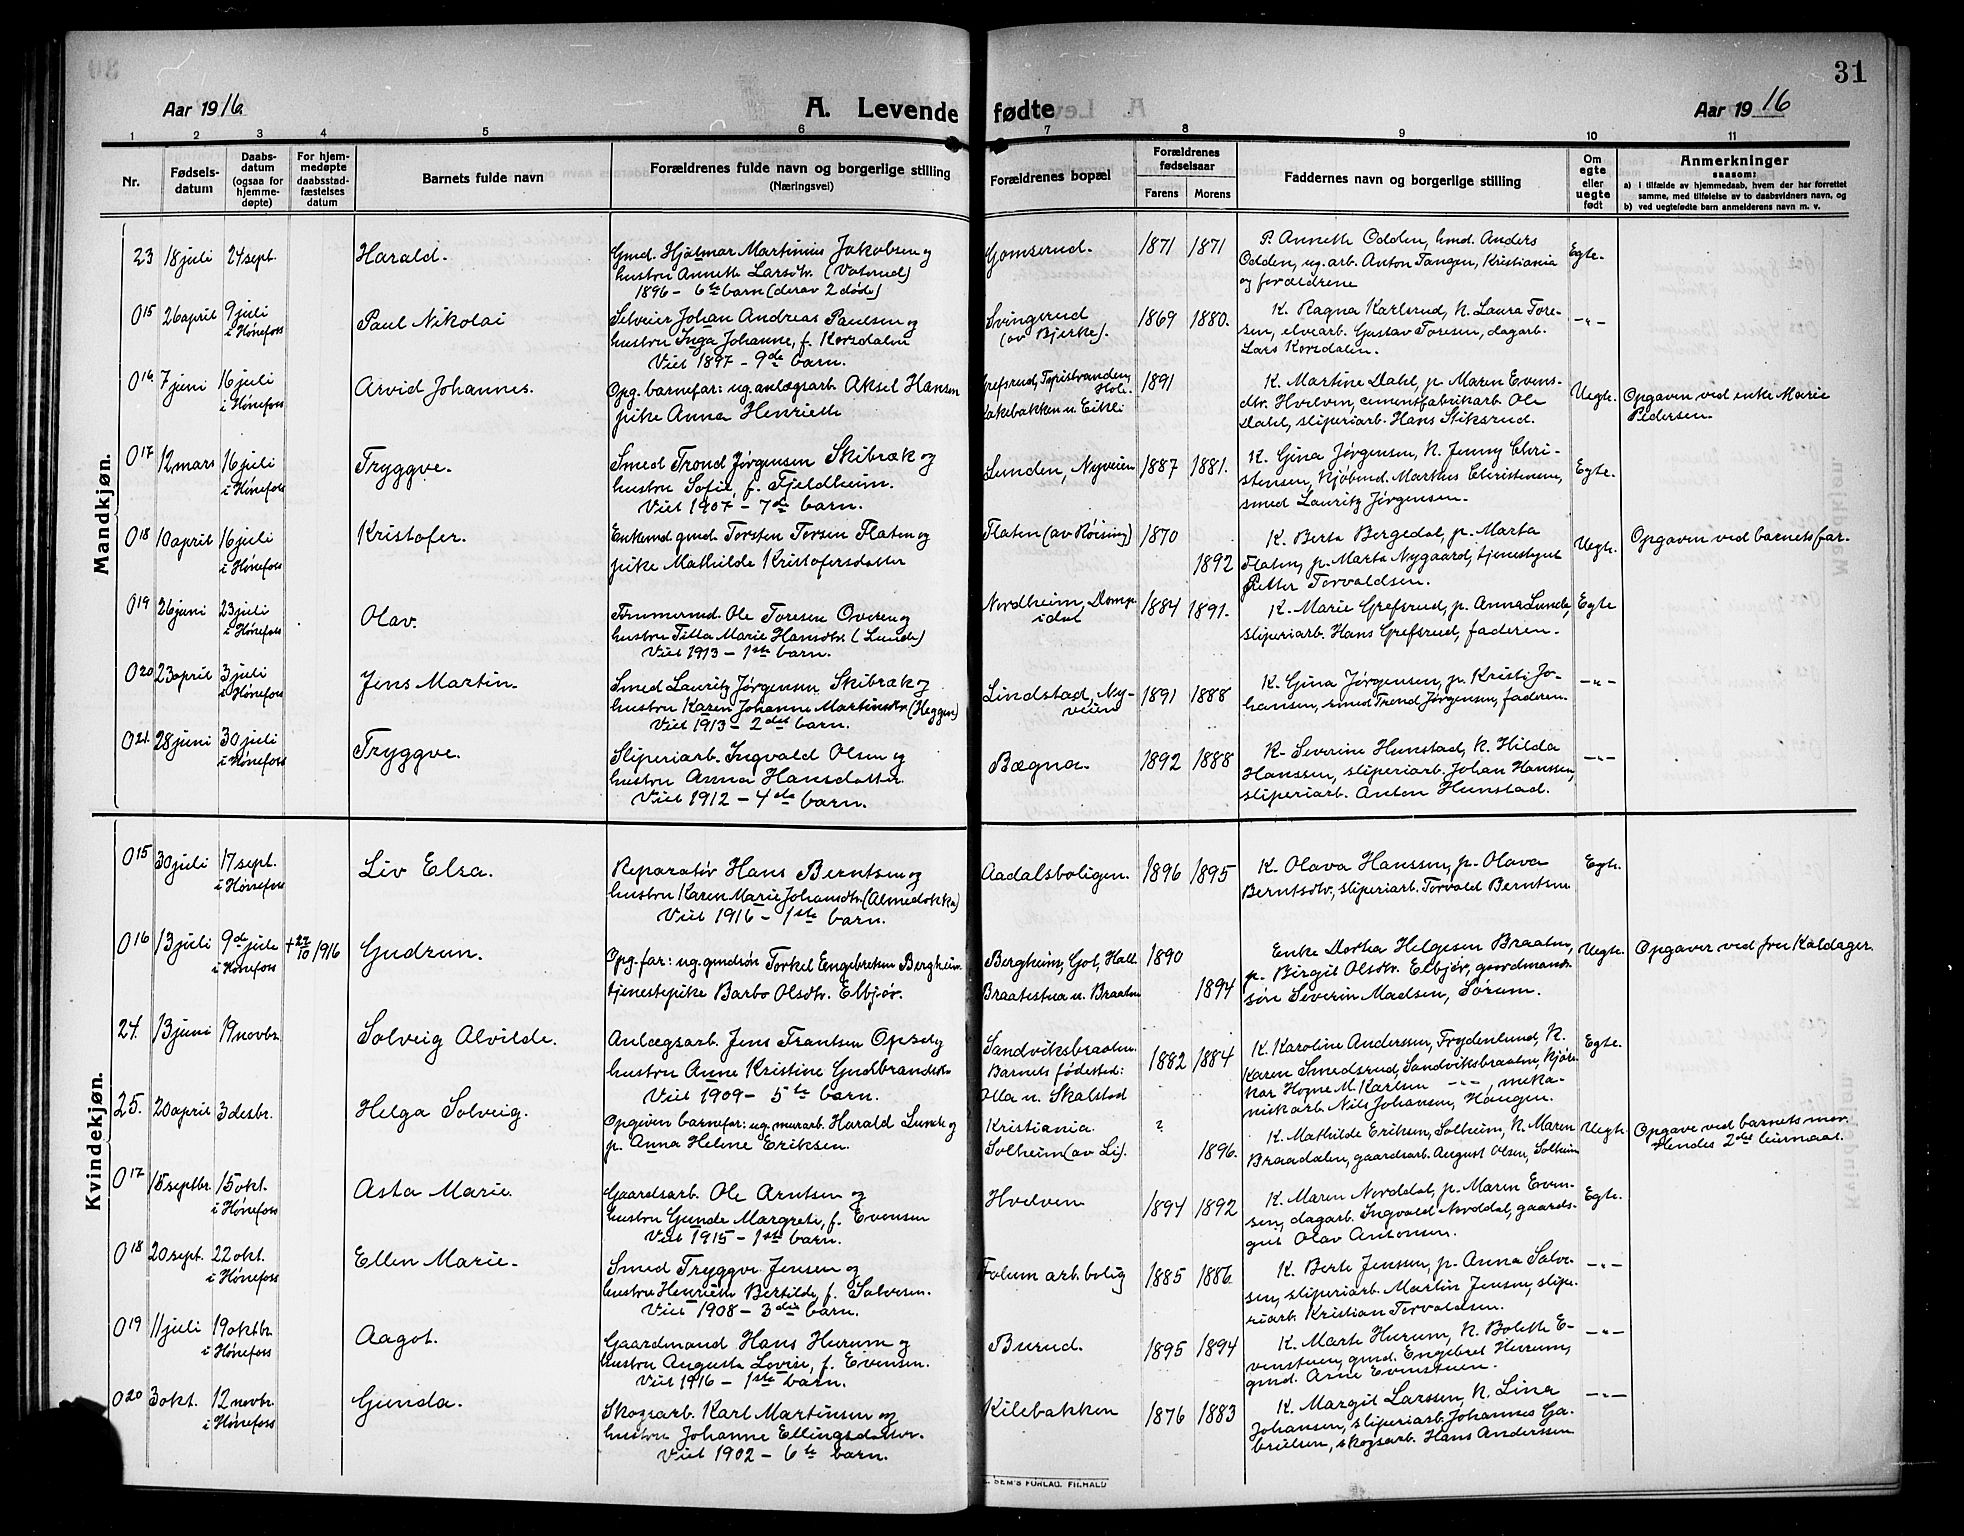 31
Aar 1916
A. Levende fødte
Aar 1916
1 2 3 4 5 6 7 8 9 10 11
Nr.
Fødsels-
datum
Daabs-
datum
(ogsaa for
hjemme-
døpte)
For hjem-
medøpte
daabsstad-
fæstelses
datum
Barnets fulde navn
Forældrenes fulde navn og borgerlige stilling
(Næringsvei)
Forældrenes bopæl
Forældrenes
fødselsaar
Farens Morens
Faddernes navn og borgerlige stilling
Om
egte
eller
uegte
født
Anmerkninger
saasom:
a) i tilfælde av hjemmedaab, hvem der har forrettet
samme, med tilføielse av to daabsvidners navn, og
b) ved uegtefødte barn anmelderens navn m. v.
Mandkjøn.
23 18 juli 24 sept. Harald.
Gmd. Hjalmar Martinius Jakobsen og
hustru Annette Larsdtr. (Vaterud)
1896 - 6te barn (derav 2 døde)
Gomserud. 1871 1871
P. Annette Odden, Gmd. Anders
Odden, ug. arb. Anton Tangen, Kristiania
og forældrene
Egte.
015 26 april 9 juli
i Hønefoss
Paul Nikolai
Selveier Johan Andreas Paulsen og
hustru Inga Johanne, f. Korsdalen
Viet 1897 - 9de barn.
Svingerud
(av Bjerke).
1869 1880.
K. Ragna Karlsrud, K. Laura Tore-
sen, elvearb. Gustav Toresen, dagarb.
Lars Korsdalen.
-"-
016 7 juni 16 juli
i Hønefoss
Arvid Johannes.
Opg. barnefar: ug. anlægsarb. Aksel Hansen
pike Anna Henriette
Grefsrud, Tyristranden,
Hole.
Lakebakken u. Eikli
1891
K. Martine Dahl, p. Maren Evens-
dtr. Hvelven, cementfabrikarb. Ole
Dahl, sliperiarb. Hans Stiksrud.
Uegte.
Opgaven ved enke Marie
Pedersen.
017 12 mars 16 juli
i Hønefoss
Tryggve.
Smed Trond Jørgensen Skibræk og
hustru Sofie, f. Fjeldheim.
Viet 1907 - 7de barn.
Lunden, Nyveien 1887 1881.
K. Gina Jørgensen, K. Jenny Chri-
stensen, kjøbmd. Markus Christensen,
smed Lauritz Jørgensen.
Egte.
018 10 april 16 juli
i Hønefoss
Kristofer.
Enkemd gmd. Torsten Torsen Flaten og
pike Mathilde Kristofersdatter
Flaten (av Røising) 1870
1892
K. Berta Bergedal, p. Marta
Flaten, p. Marta Nygaard, tjenestegut
Petter Torvaldsen.
Uegte.
Opgaven ved barnets far.
019 26 juni 23 juli
i Hønefoss
Olav.
Tømmermd. Ole Toresen Overen og
hustru Titta Marie Hansdtr. (Lunde)
Viet 1913 - 1ste barn.
Nordheim, Domp-
idal
1884 1891.
K. Marie Grefsrud, p. Anna Lunde,
sliperiarb. Hans Grefsrud, faderen.
Egte
020 23 april 3 juli
i Hønefoss
Jens Martin.
Smed Lauritz Jørgensen Skibræk og
hustru Karen Johanne Martinsdtr. (Heggen)
Viet 1913 - 2det barn.
Lindstad, Ny-
veien
1891 1888
K. Gina Jørgensen, p. Kristi Jo-
hansen, smed Trond Jørgensen, faderen.
-"-
021. 28 juni 30 juli
i Hønefoss
Tryggve.
Sliperiarb. Ingvald Olsen og
hustru Anna Hansdatter.
Viet 1912 - 4de barn.
Bægna. 1892 1888
K. Severine Hunstad, K. Hilda
Hanssen, sliperiarb. Johan Hanssen,
sliperiarb. Anton Hunstad.
-"-
Kvindekjøn.
015 30 juli 17 sept.
i Hønefoss
Liv Elsa.
Reparatør Hans Berntsen og
hustru Karen Marie Johansdtr. (Almedokka)
Viet 1916 - 1ste barn.
Aadalsboligen. 1896 1895
K. Olava Hanssen, p. Olava
Berntsdtr, sliperiarb. Torvald Berntsen
Egte.
016 13 juli 9de jule
i Hønefoss
+ 27/10 1916
Gudrun.
Opg. far: ug. gmdsøn Torkel Engebretsen Bergheim
tjenestepike Barbo Olsdtr. Elbjør.
Bergheim, Gol, Hall.
Braatestua u. Braaten
1890
1894
Enke Dortea Helgesen Braaten,
p. Birgit Olsdtr. Elbjør, gaardmands-
søn Severin Madsen, Sørum.
Uegte.
Opgaver ved fru Kaldager.
24. 13 juni 19 novbr. Solveig Alvilde.
Anlægsarb. Jens Frantsen Opseth og
hustru Anne Kristine Gudbrandsdtr.
Viet 1909 - 5te barn.
Sandviksbraaten.
Barnets fødested:
Olla u. Skalstad
1882 1884
K. Karoline Anderssen, Frydenlund, K.
Karen Smedsrud, Sandviksbraaten, kjøre-
kar Hogne M. Karlsen -"-, meka-
nikarb. Nils Johansen, Haugen.
Egte.
25. 20 april 3 desbr. Helga Solveig.
Opgiven barnefar: ug. murarb. Harald Lunde og
p. Anna Helene Eriksen.
Kristiania.
Solheim (av Li).
?
1896.
K. Mathilde Eriksen, Solheim, K. Maren
Braadalen, gaardsarb. August Olsen, Solheim
Uegte.
Opgave ved barnets mor.
Hendes 2det leiermaal.
017 15 septbr. 15 okt.
i Hønefoss
Asta Marie.
Gaardsarb. Ole Arntsen og
hustru Gunde Margrete, f. Evensen
Viet 1915 - 1ste barn.
Hvelven 1894 1892
K. Maren Norddal, p. Maren Even-
sen, dagarb. Ingvald Norddal, gaards-
gut Olav Antonsen.
Egte.
018 20 sept. 22 okt.
i Hønefoss
Ellen Marie.
Smed Tryggve Jensen og
hustru Henriette Bertilde, f. Salvesen.
Viet 1908 - 3die barn.
Follum arb. bolig 1885 1886.
K. Berte Jenssen, p. Anna Salve-
sen, sliperiarb. Martin Jensen, slipe-
riarb. Kristian Torvaldsen.
-"-
019 11 juli 19 oktbr.
i Hønefoss
Aagot.
Gaardmand Hans Hurum og
hustru Augusta Lovise, f. Evensen.
Viet 1916 - 1ste barn.
Burud. 1895 1894
K. Marte Hurum, K. Bolette E-
venstuen, gmd. Engebret Hurum,
gmd. Arne Evenstuen.
-"-
020 3 okt. 12 novbr.
i Hønefoss
Gunda.
Skogsarb. Karl Martinsen og
hustru Johanne Ellingsdatter.
Viet 1902 - 6te barn.
Kilebakken 1876 1883
K. Margit Larssen, K. Lina
Johansen, sliperiarb. Johannes Ga-
brielsen, skogsarb. Hans Anderssen
-"-
SEM'S FORLAG, FR.HALD